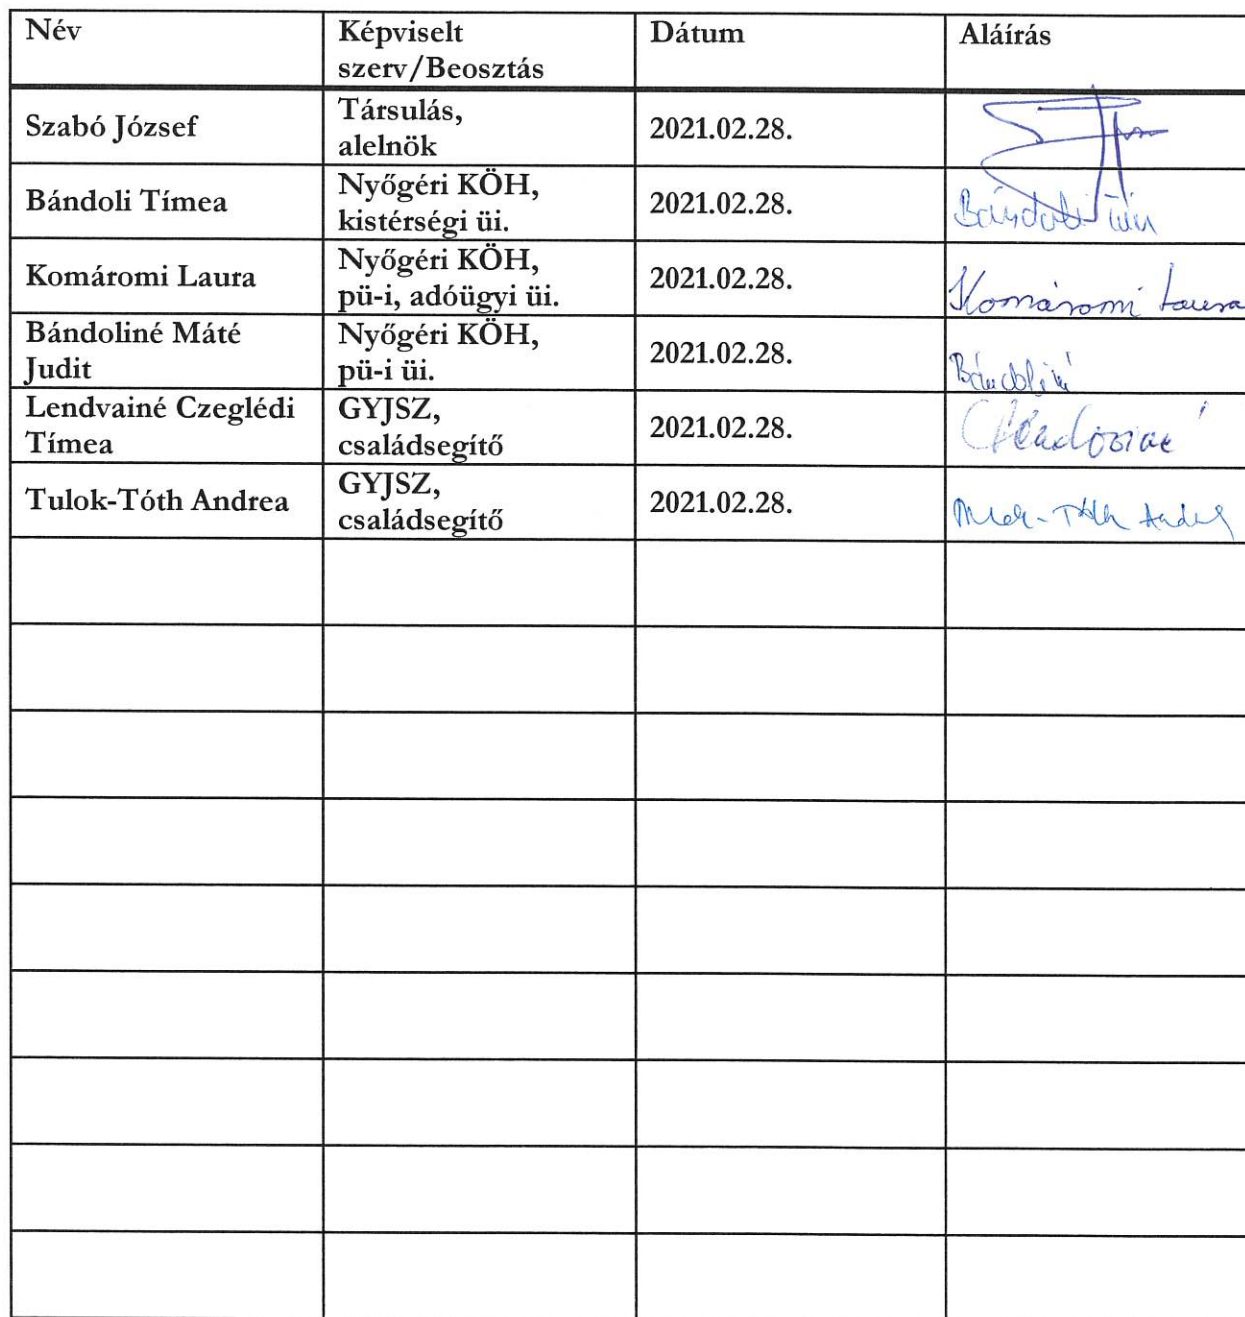 Név
Képviselt
szerv/Beosztás
Dátum
Aláírás
Szabó József
Társulás,
alelnök
2021.02.28.
Bándoli Tímea
Nyőgéri KÖH,
kistérségi üi.
2021.02.28.
Bándoli
Komáromi Laura
Nyőgéri KÖH,
pü-i, adóügyi üi.
2021.02.28.
Komáromi Laura
Bándoliné Máté
Judit
Nyőgéri KÖH,
pü-i üi.
2021.02.28.
Bándoliné
Lendvainé Czeglédi
Tímea
GYJSZ,
családsegítő
2021.02.28.
Tulok-Tóth Andrea
GYJSZ,
családsegítő
2021.02.28.
Tulok-Tóth Andrea